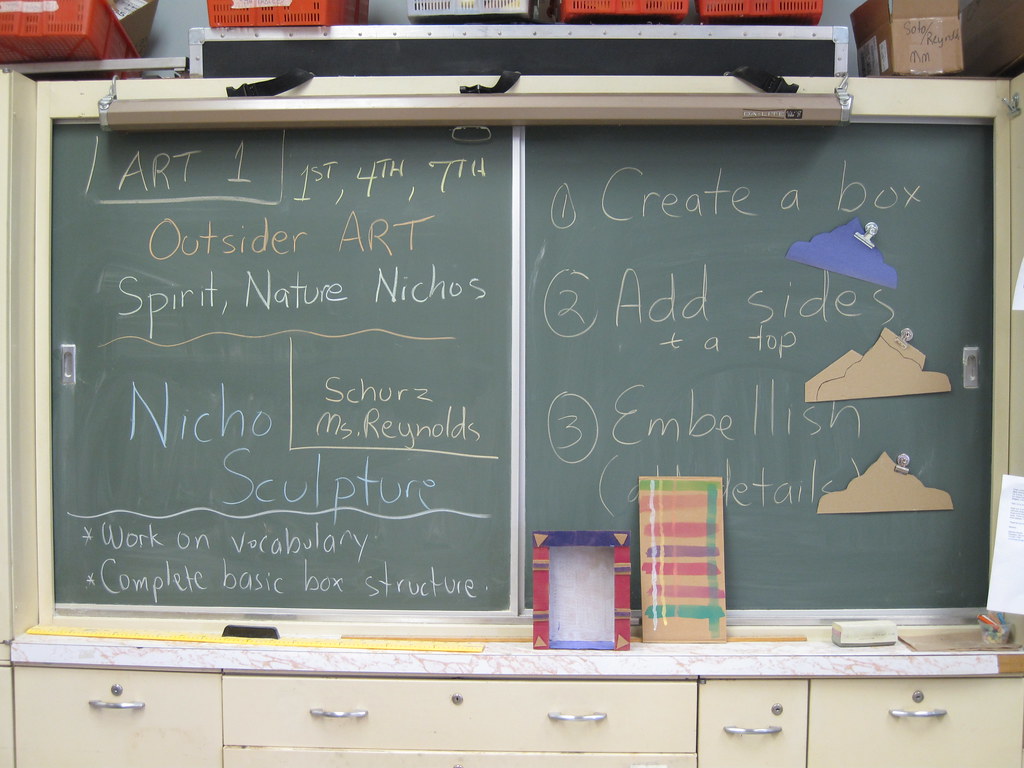 Sotos
/Reynolds
MM
DA-LITE
ART 1
1ST, 4TH, 7TH
Outsider ART
Spirit, Nature Nichos
Nicho
Schurz
Ms. Reynolds
Sculpture
* Work on vocabulary.
* Complete basic box structure.
① Create a box
② Add sides
+ a top
③ Embellish
(add details)